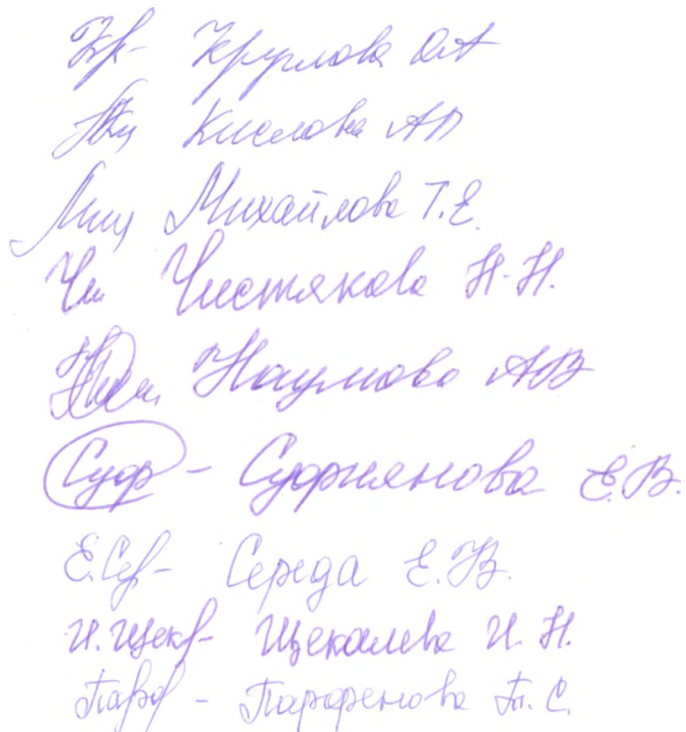 Круглова О.А
Кислова АП
Михайлова Т.Е.
Чистякова Н.Н.
Наумова АВ
Суф - Суфиянова Е.В.
Е.Сер- Середа Е.В.
И.Щек- Щекалева И.Н.
Парф - Парфенова Т.С.